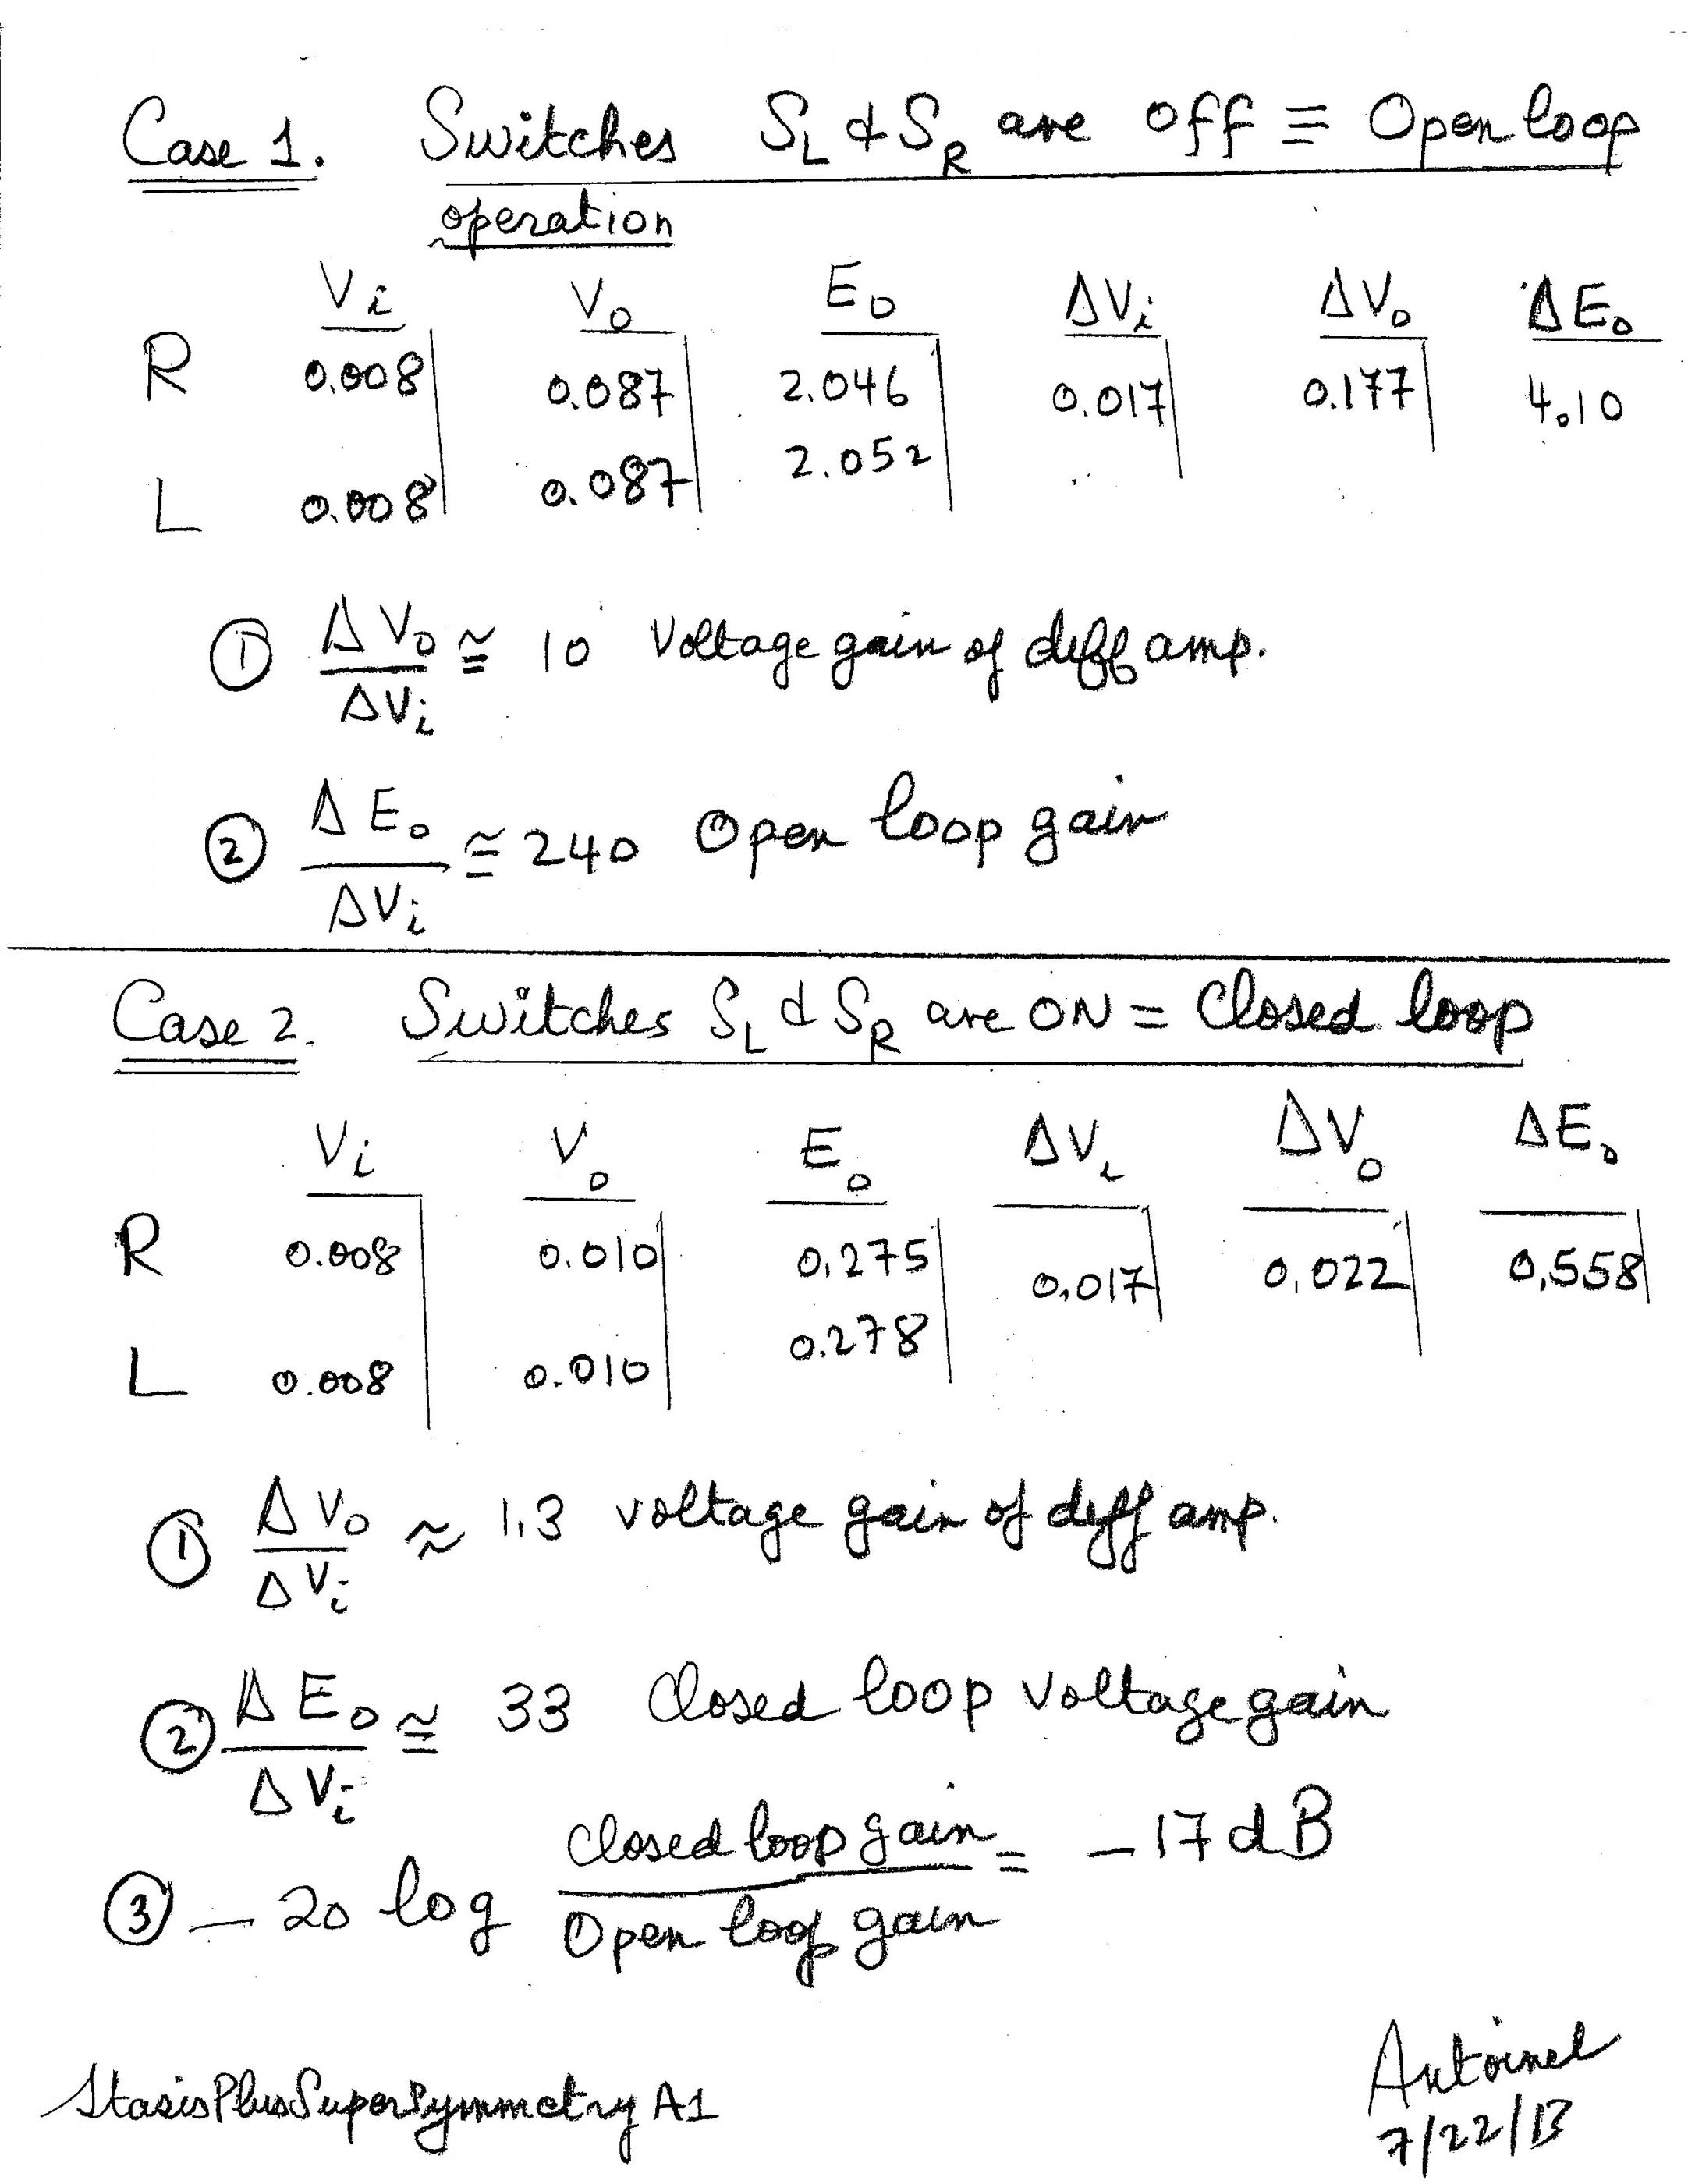 Case 1. Switches S_L & S_R are off ≡ Open loop
operation
Vi Vo Eo ΔVi ΔVo ΔEo
R 0.008 0.087 2.046 0.017 0.177 4.10
2.052
L 0.008 0.087
① ΔVo/ΔVi ≅ 10 Voltage gain of diff amp.
② ΔEo/ΔVi ≅ 240 Open loop gain
Case 2. Switches S_L & S_R are ON = Closed loop
Vi Vo Eo ΔVi ΔVo ΔEo
R 0.008 0.010 0,275 0,017 0,022 0,558
0.278
L 0.008 0.010
① ΔVo/ΔVi ≈ 1.3 voltage gain of diff amp.
② ΔEo/ΔVi ≅ 33 Closed loop voltage gain
③ – 20 log Closed loop gain/Open loop gain = – 17 dB
StasisPlusSuperSymmetry A1
Antoinel
7/22/13